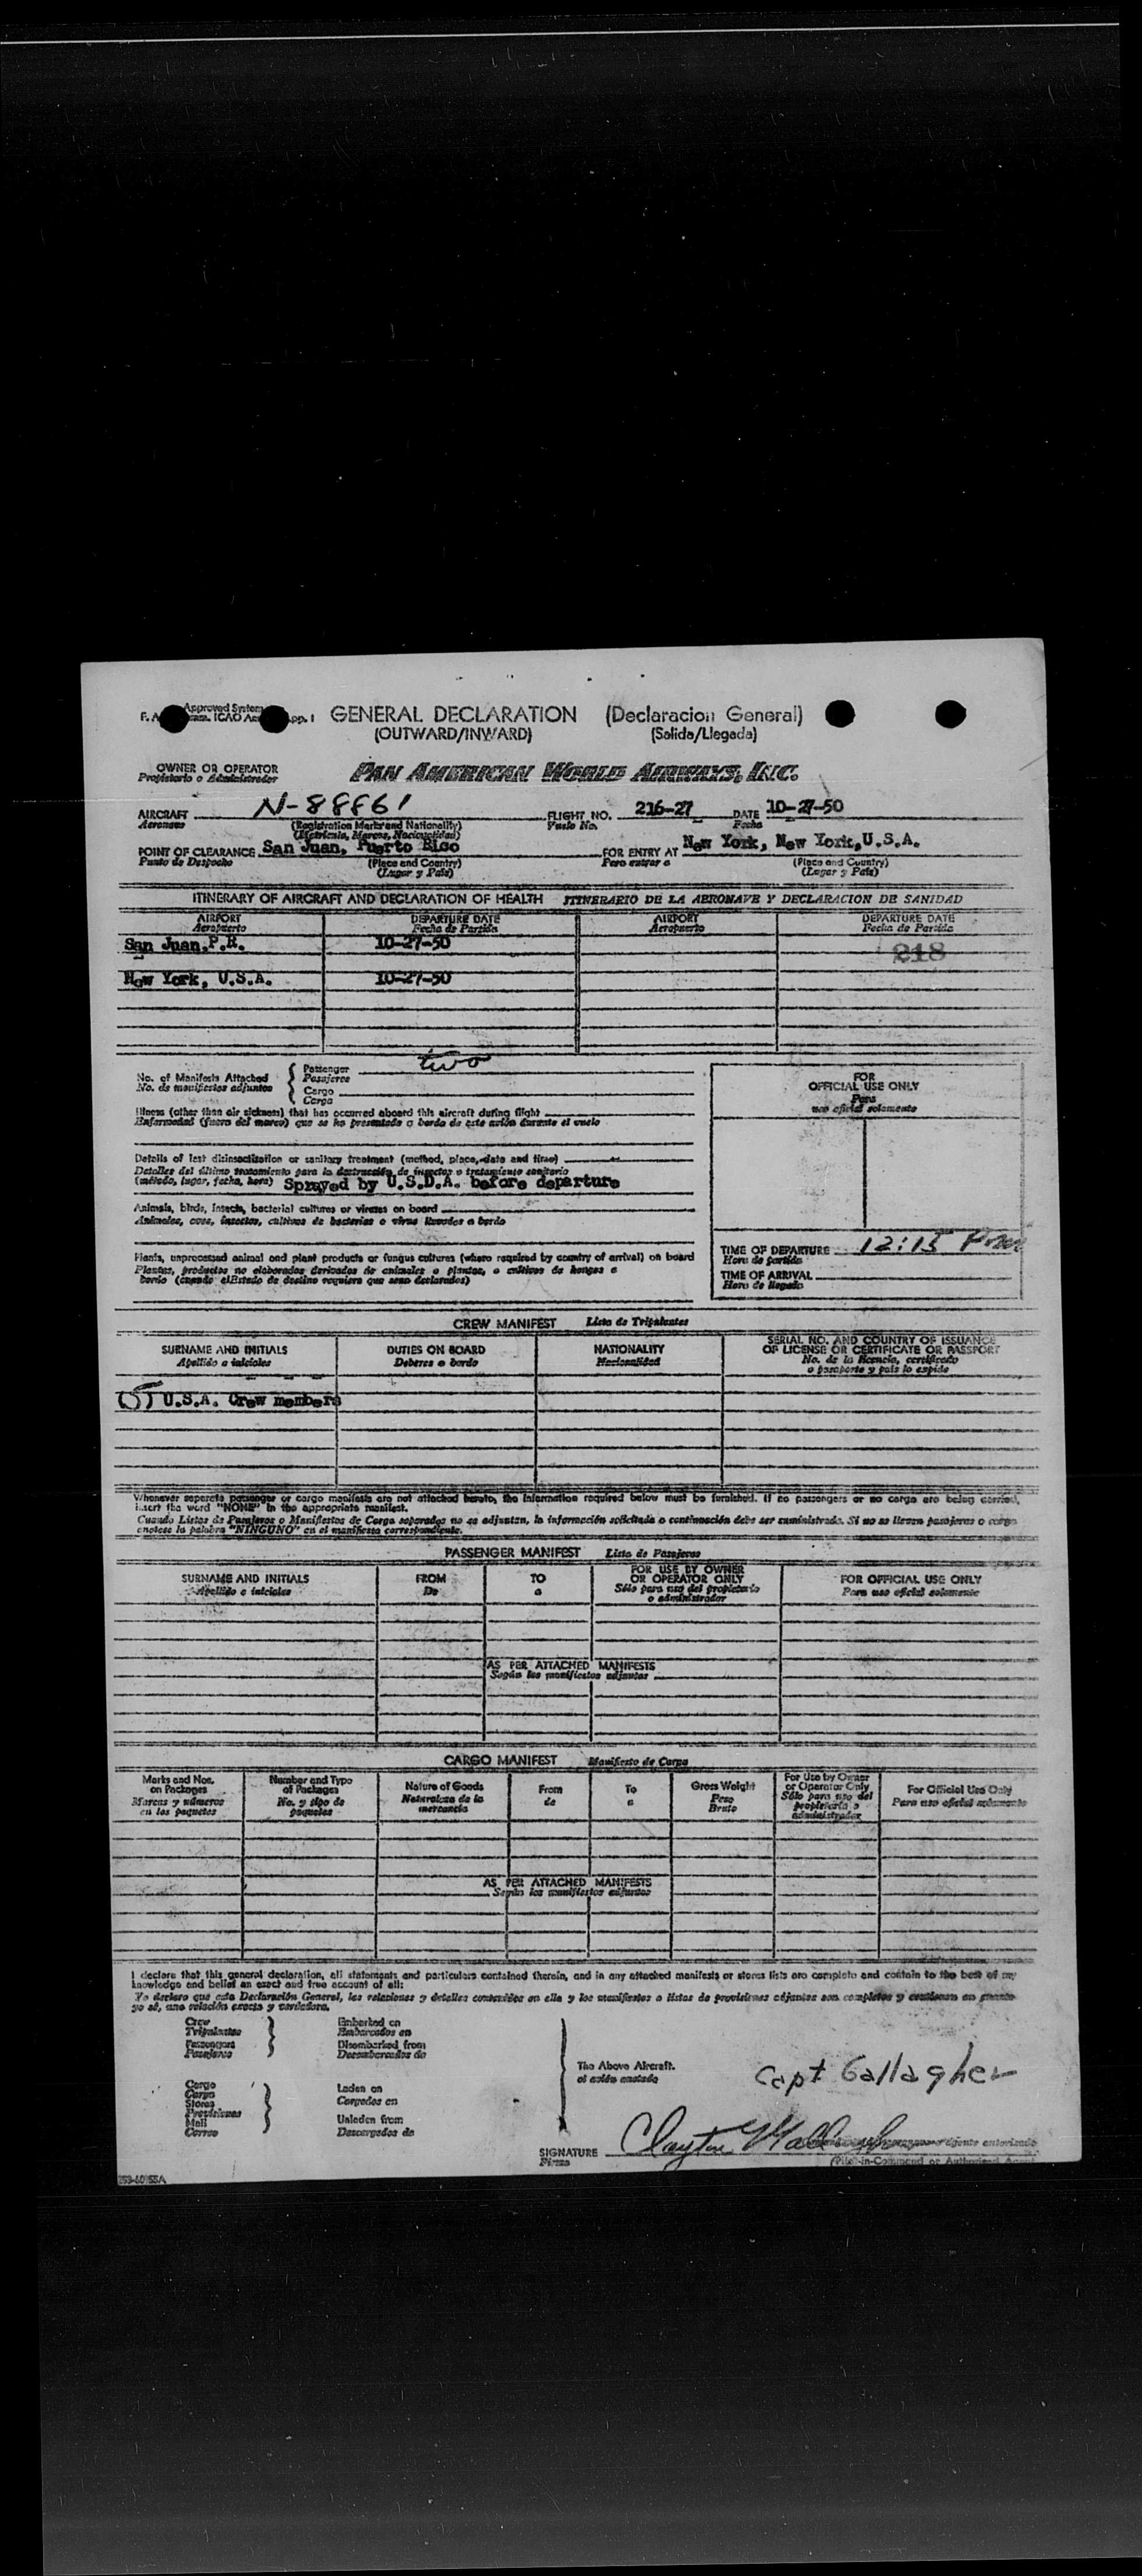 Approved System
F. A ram. ICAO An pp. I
GENERAL DECLARATION (Declaracion General)
(OUTWARD/INWARD) (Salida/Llegada)
OWNER OR OPERATOR
Propietario o Administrador
PAN AMERICAN WORLD AIRWAYS, INC.
AIRCRAFT N-88861 FLIGHT NO. 216-27 DATE 10-27-50
Aeronave (Registration Marks and Nationality) Vuelo No. Fecha
(Matricula, Marcas, Nacionalidad)
POINT OF CLEARANCE San Juan, Puerto Rico FOR ENTRY AT New York, New York, U.S.A.
Punto de Despacho (Place and Country) Para entrar a (Place and Country)
(Lugar y País) (Lugar y País)
ITINERARY OF AIRCRAFT AND DECLARATION OF HEALTH ITINERARIO DE LA AERONAVE Y DECLARACION DE SANIDAD
AIRPORT DEPARTURE DATE AIRPORT DEPARTURE DATE
Aeropuerto Fecha de Partida Aeropuerto Fecha de Partida
San Juan, P.R. 10-27-50 218
New York, U.S.A. 10-27-50
two
No. of Manifests Attached { Passenger
No. de manifiestos adjuntos Pasajeros
Cargo
Carga
Illness (other than air sickness) that has occurred aboard this aircraft during flight
Enfermedad (fuera del mareo) que se ha presentado a bordo de este avión durante el vuelo
Details of last disinsectization or sanitary treatment (method, place, date and time)
Detalles del último tratamiento para la destrucción de insectos o tratamiento sanitario
(método, lugar, fecha, hora) Sprayed by U.S.D.A. before departure
Animals, birds, insects, bacterial cultures or viruses on board
Animales, aves, insectos, cultivos de bacterias o virus llevados a bordo
Plants, unprocessed animal and plant products or fungus cultures (where required by country of arrival) on board
Plantas, productos no elaborados derivados de animales o plantas, o cultivos de hongos a
bordo (cuando el Estado de destino requiera que sean declarados)
FOR
OFFICIAL USE ONLY
Para
uso oficial solamente
TIME OF DEPARTURE 12:15
Hora de partida
TIME OF ARRIVAL
Hora de llegada
CREW MANIFEST Lista de Tripulantes
SURNAME AND INITIALS DUTIES ON BOARD NATIONALITY SERIAL NO. AND COUNTRY OF ISSUANCE
OF LICENSE OR CERTIFICATE OR PASSPORT
Apellido e iniciales Deberes a bordo Nacionalidad No. de la licencia, certificado
o pasaporte y país lo expide
(5) U.S.A. Crew members
Whenever separate passenger or cargo manifests are not attached hereto, the information required below must be furnished. If no passengers or no cargo are being carried,
insert the word "NONE" in the appropriate manifest.
Cuando Listas de Pasajeros o Manifiestos de Carga separados no se adjuntan, la información solicitada a continuación debe ser suministrada. Si no se llevan pasajeros o carga
anótese la palabra "NINGUNO" en el manifiesto correspondiente.
PASSENGER MANIFEST Lista de Pasajeros
SURNAME AND INITIALS FROM TO FOR USE BY OWNER
OR OPERATOR ONLY FOR OFFICIAL USE ONLY
Apellido e iniciales De a Sólo para uso del propietario
o administrador Para uso oficial solamente
AS PER ATTACHED MANIFESTS
Según los manifiestos adjuntos
CARGO MANIFEST Manifiesto de Carga
Marks and Nos.
on Packages
Marcas y números
en los paquetes
Number and Type
of Packages
No. y tipo de
paquetes
Nature of Goods
Naturaleza de la
mercancía
From
de
To
a
Gross Weight
Peso
Bruto
For Use by Owner
or Operator Only
Sólo para uso del
propietario o
administrador
For Official Use Only
Para uso oficial solamente
AS PER ATTACHED MANIFESTS
Según los manifiestos adjuntos
I declare that this general declaration, all statements and particulars contained therein, and in any attached manifests or stores lists are complete and contain to the best of my
knowledge and belief an exact and true account of all:
Yo declaro que esta Declaración General, las relaciones y detalles contenidos en ella y los manifiestos o listas de provisiones adjuntas son completos y contienen en cuanto
yo sé, una relación exacta y verdadera.
Crew
Tripulantes
Passengers
Pasajeros
Embarked on
Embarcados en
Disembarked from
Desembarcados de
Cargo
Carga
Stores
Provisiones
Mail
Correo
Laden on
Cargados en
Unladen from
Descargados de
The Above Aircraft.
el avión anotado
Capt Gallagher
SIGNATURE
Firma
agente autorizado
(Pilot-in-Command or Authorized Agent